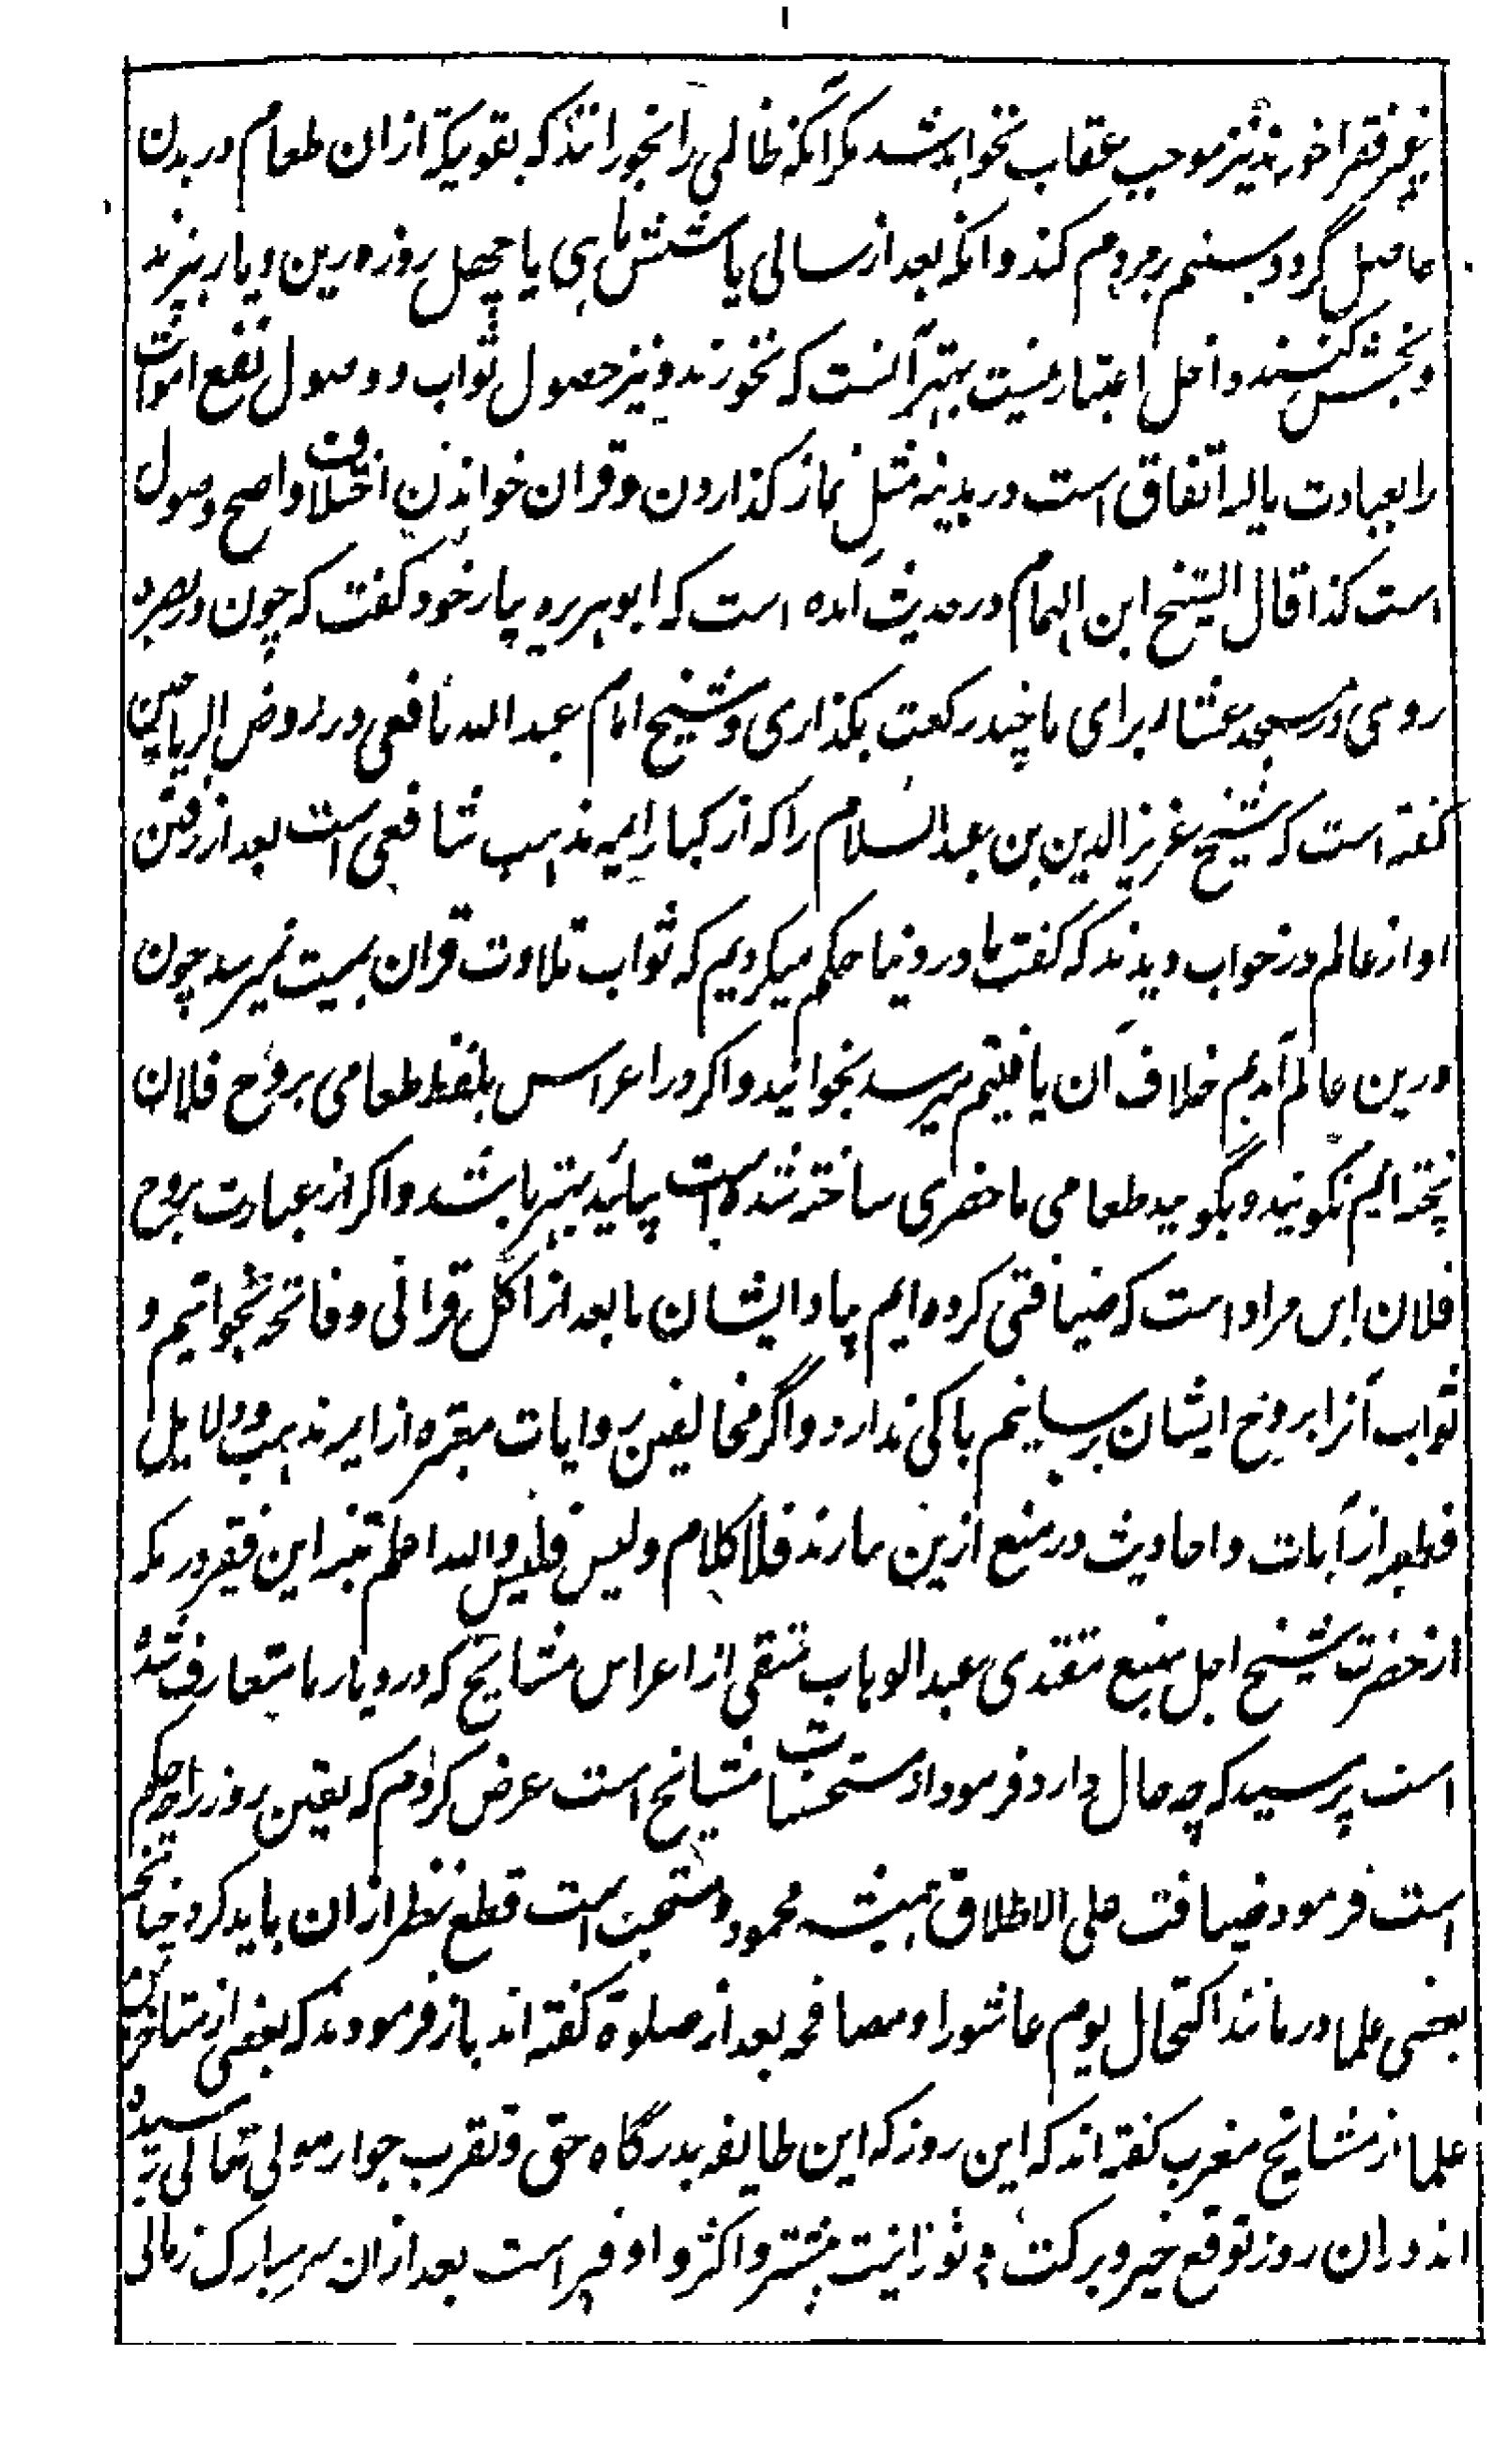 غیر فقرا خورند نیز موجب عقاب نخواهد شد مگر آنکه ظالمی را نخورانند که بقوتیکه ازان طعام در بدن
حاصل گردد ستم بمردم کند و آنکه بعد از سالی یا شش ماهی یا چهل روز درین دیار پزند
و بخشش کنند داخل اعتبار نیست بهتر آنست که نخورند و نیز حصول ثواب و وصول نفع اموات
را بعبادت مالیه اتفاق است در بدنیه مثل نماز گذاردن و قران خواندن اختلاف و اصح وصول
است کذا قال الشیخ ابن الهمام در حدیث آمده است که ابوهریره بیار خود گفت که چون در بصره
روی در مسجد عشار برای ما چند رکعت بگذاری و شیخ امام عبد الله یافعی در روض الریاحین
گفته است که شیخ عزیز الدین بن عبد السلام را که از کبار ایمه مذهب شافعی است بعد از رفتن
او از عالم در خواب دیدند که گفت ما در دنیا حکم میکردیم که ثواب تلاوت قران بمیت نمیرسد چون
درین عالم آمدیم خلاف آن یافتیم میرسد بخوانید و اگر در اعراس بلفظ طعامی بروح فلان
پخته ایم نگویند و بگویند طعامی ماحضری ساخته شده است بیائید بهتر باشد و اگر از عبارت بروح
فلان این مراد است که ضیافتی کرده ایم بیاد ایشان تا بعد از اکل قرانی و فاتحه بخوانیم و
ثواب آنرا بروح ایشان برسانیم باکی ندارد و اگر مخالفین روایات معتبره از ایمه مذهب و دلایل
قطعیه از آیات و احادیث در منع ازین بیارند فلا کلام و لیس فلیس والله اعلم تنبیه این فقیر در مکه
از حضرت شیخ اجل متبع مقتدی عبد الوهاب متقی از اعراس مشایخ که در دیار ما متعارف شده
است پرسید که چه حال دارد فرمود از مستحسنات مشایخ است عرض کردم که تعین روز را چه حکم
است فرمود ضیافت علی الاطلاق همیشه محمود و مستحب است قطع نظر ازان باید کرد چنانچه
بعضی علما در مانند اکتحال یوم عاشورا و مصافحه بعد از صلوة گفته اند باز فرمودند که بعضی از متاخرین
علما از مشایخ مغرب گفته اند که این روز که این طایفه بدرگاه حق و تقرب جوار مولی تعالی رسیده
اند دران روز توقع خیر و برکت و نورانیت بیشتر و اکثر و اوفر است بعد ازان سر مبارک زمانی